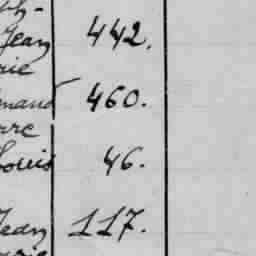 Jean 442.
rie
mand 460.
rre
Louis 46.
Jean 117.